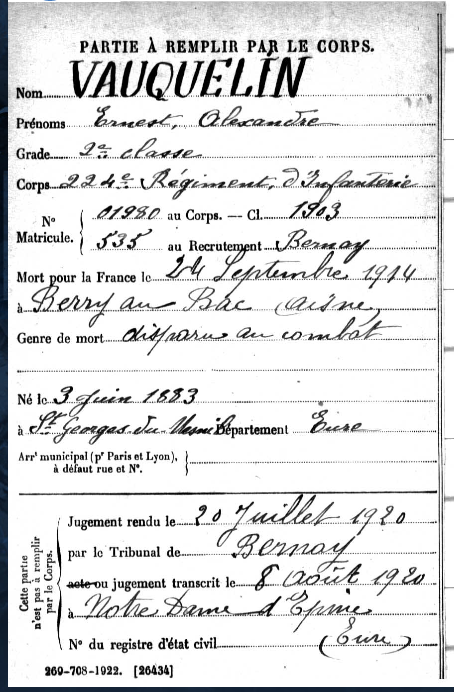 PARTIE À REMPLIR PAR LE CORPS.
Nom VAUQUELIN
Prénoms Ernest, Alexandre
Grade 2e classe
Corps 224e Régiment, d'Infanterie
N° Matricule. { 01980 au Corps. — Cl. 1903
535 au Recrutement Bernay
Mort pour la France le 24 Septembre 1914
à Berry au Bac (aisne)
Genre de mort disparu au combat
Né le 3 Juin 1883
à St Georges du Mesnil Département Eure
Arrt municipal (pr Paris et Lyon),
à défaut rue et N°.
Cette partie n'est pas à remplir par le Corps.
Jugement rendu le 20 Juillet 1920
par le Tribunal de Bernay
acte ou jugement transcrit le 8 août 1920
à Notre Dame d'Epine
N° du registre d'état civil (Eure)
269-708-1922. [26434]